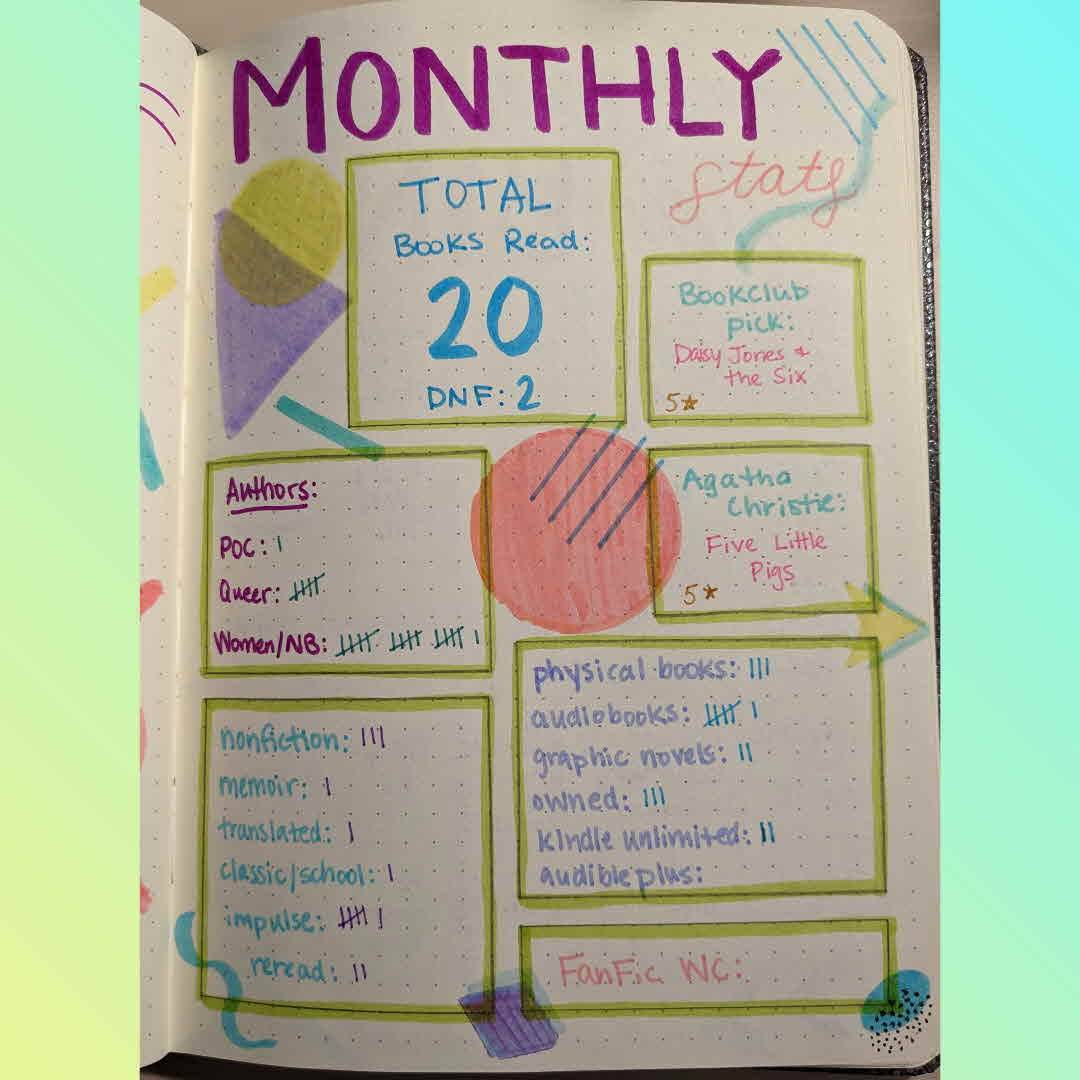 MONTHLY
stats
TOTAL
BOOKS Read:
20
DNF: 2
Bookclub
pick:
Daisy Jones +
the Six
5★
Authors:
POC: |
Queer: 卌
Women/NB: 卌 卌 卌 |
Agatha
Christie:
Five Little
Pigs
5★
nonfiction: |||
memoir: |
translated: |
classic/school: |
impulse: 卌 |
reread: ||
physical books: |||
audiobooks: 卌 |
graphic novels: ||
owned: |||
kindle unlimited: ||
audible plus:
FanFic WC: